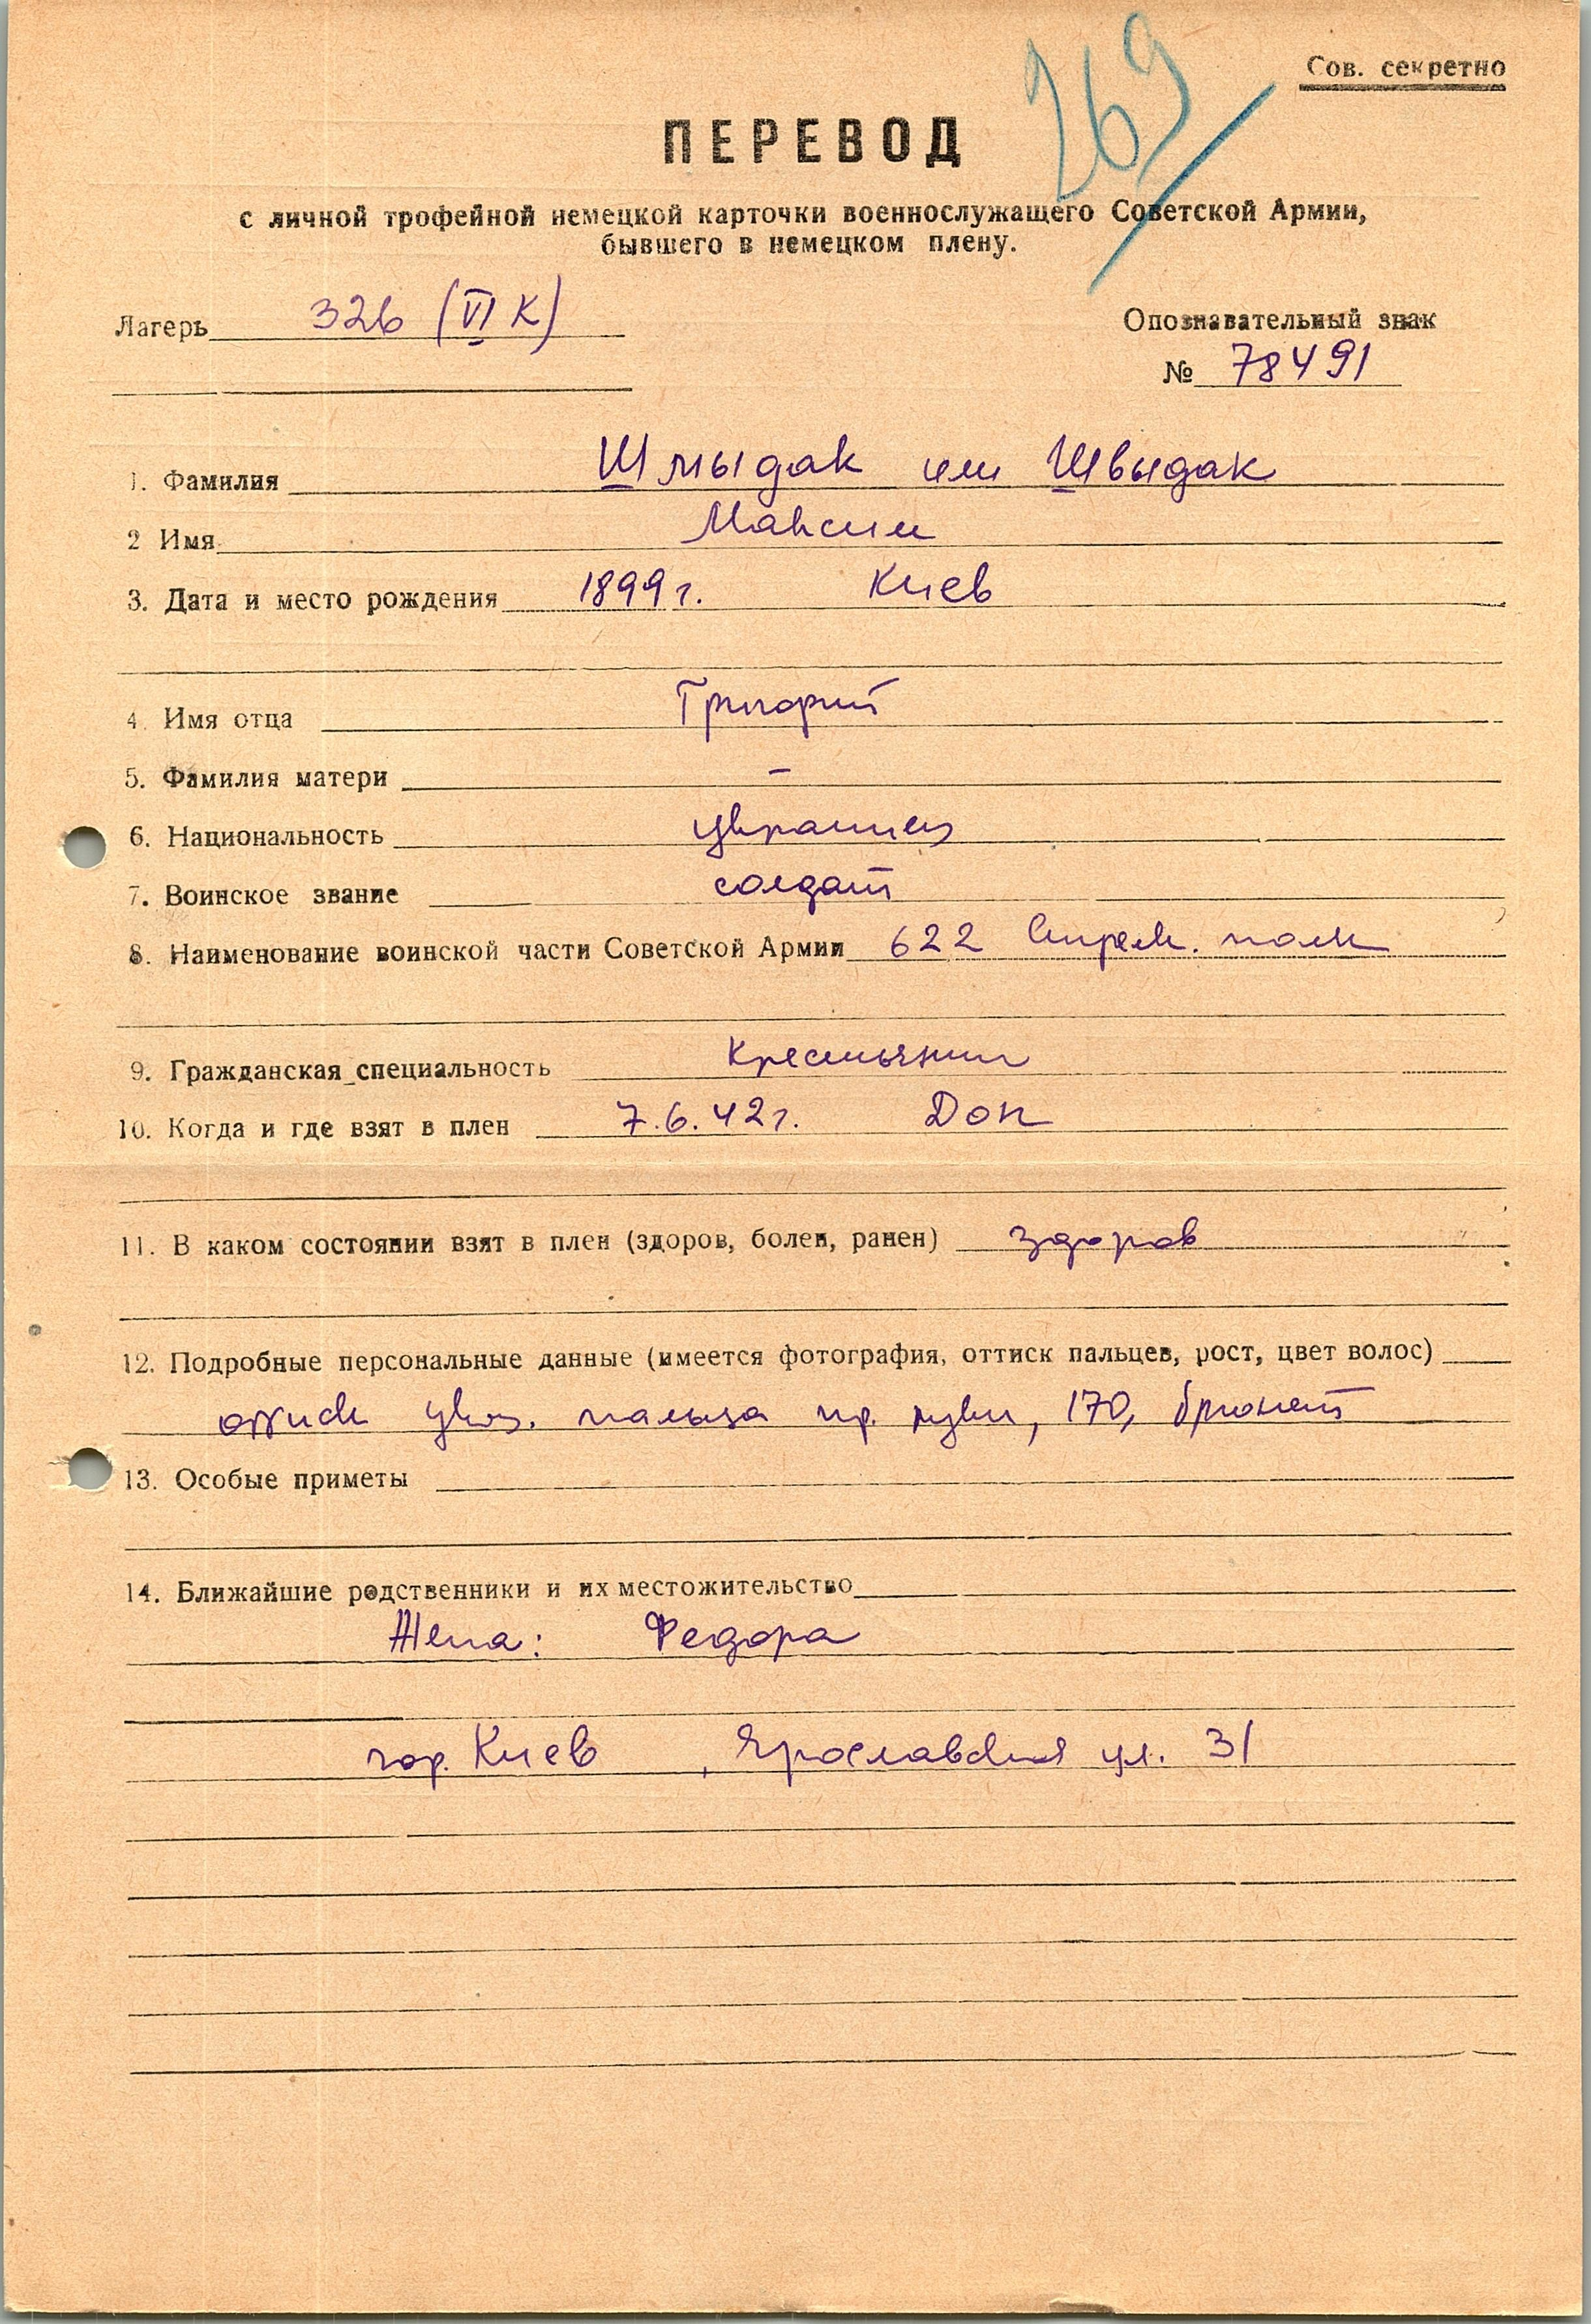 269
Сов. секретно
ПЕРЕВОД
с личной трофейной немецкой карточки военнослужащего Советской Армии,
бывшего в немецком плену.
Лагерь 326 (VI К)
Опознавательный знак
№ 78491
1. Фамилия Шмыдак или Швыдак
2 Имя Максим
3. Дата и место рождения 1899 г. Киев
4. Имя отца Григорий
5. Фамилия матери –
6. Национальность украинец
7. Воинское звание солдат
8. Наименование воинской части Советской Армии 622 Стрелк. полк
9. Гражданская специальность Крестьянин
10. Когда и где взят в плен 7.6.42 г. Дон
11. В каком состоянии взят в плен (здоров, болен, ранен) здоров
12. Подробные персональные данные (имеется фотография, оттиск пальцев, рост, цвет волос)
оттиск указ. пальца пр. руки, 170, брюнет
13. Особые приметы
14. Ближайшие родственники и их местожительство
Жена: Федора
гор. Киев, Ярославская ул. 31